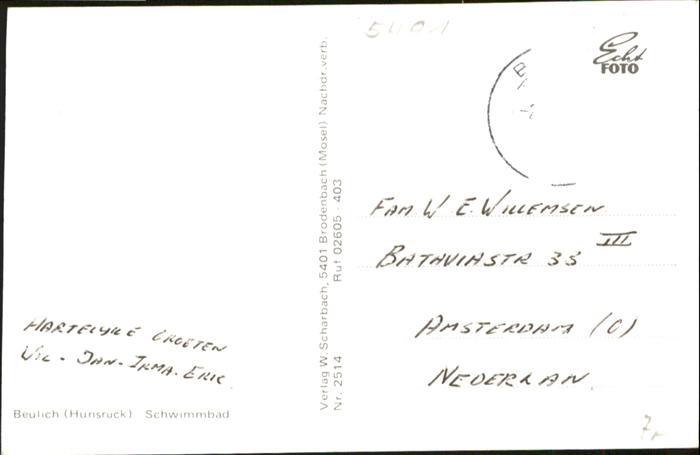 5401
Echt
FOTO
FAM W E. WILLEMSEN
BATAVIASTR 33 III
AMSTERDAM (O)
NEDERLAN.
HARTELYKE GROETEN
JAN - IRMA - ERIC
Beulich (Hunsrück) Schwimmbad
Verlag W. Scharbach, 5401 Brodenbach (Mosel) Nachdr. verb.
Nr. 2514 Ruf 02605 - 403